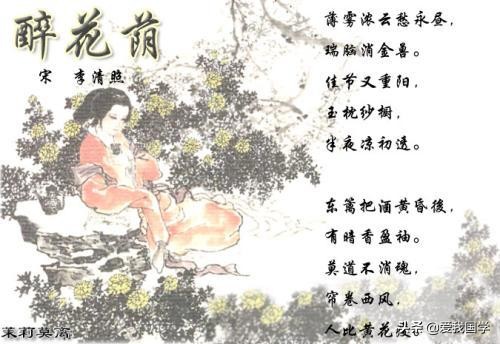 醉花荫
宋 李清照
薄雾浓云愁永昼，
瑞脑消金兽。
佳节又重阳，
玉枕纱橱，
半夜凉初透。
东篱把酒黄昏後，
有暗香盈袖。
莫道不消魂，
帘卷西风，
人比黄花瘦。
茉莉莫离
头条 @爱我国学